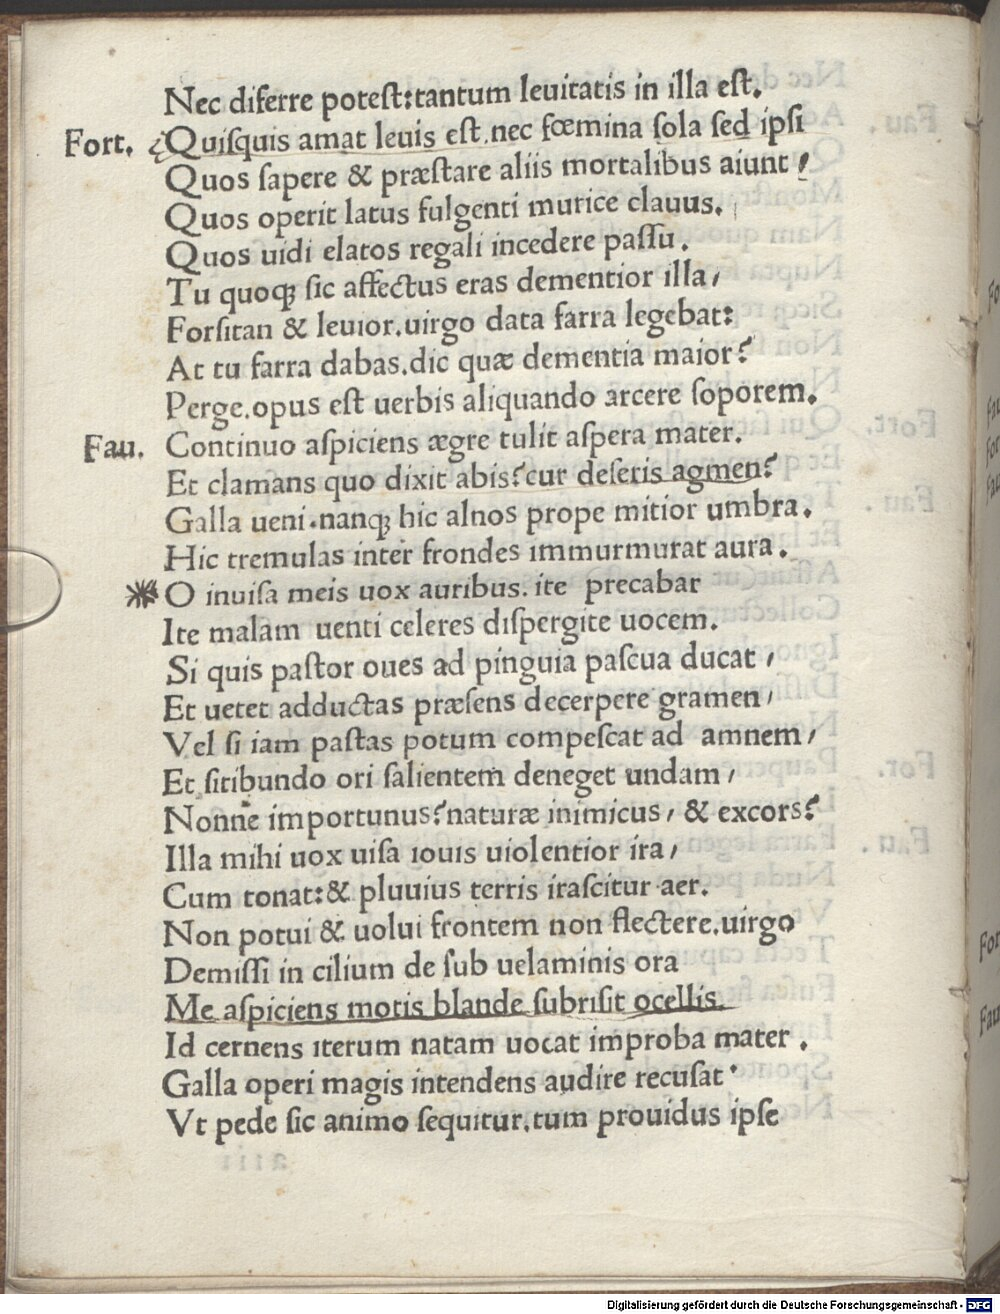 Nec differre potest:tantum leuitatis in illa est.
Fort. Quisquis amat leuis est.nec fœmina sola sed ipsi
Quos sapere & præstare aliis mortalibus aiunt/
Quos operit latus fulgenti murice clauus.
Quos uidi elatos regali incedere passu.
Tu quoqꝫ sic affectus eras dementior illa/
Forsitan & leuior.uirgo data farra legebat:
At tu farra dabas.dic quæ dementia maior?
Perge.opus est uerbis aliquando arcere soporem.
Fau. Continuo aspiciens ægre tulit aspera mater.
Et clamans quo dixit abis?cur deseris agmen?
Galla ueni.nanqꝫ hic alnos prope mitior umbra.
Hic tremulas inter frondes immurmurat aura.
O inuisa meis uox auribus. ite precabar
Ite malam uenti celeres dispergite uocem.
Si quis pastor oues ad pinguia pascua ducat/
Et uetet adductas præsens decerpere gramen/
Vel si iam pastas potum compescat ad amnem/
Et sitibundo ori salientem deneget undam/
Nonne importunus?naturæ inimicus/ & excors?
Illa mihi uox uisa iouis uiolentior ira/
Cum tonat:& pluuius terris irascitur aer.
Non potui & uolui frontem non flectere.uirgo
Demissi in cilium de sub uelaminis ora
Me aspiciens motis blande subrisit ocellis.
Id cernens iterum natam uocat improba mater.
Galla operi magis intendens audire recusat.
Vt pede sic animo sequitur.tum prouidus ipse
Digitalisierung gefördert durch die Deutsche Forschungsgemeinschaft - DFG